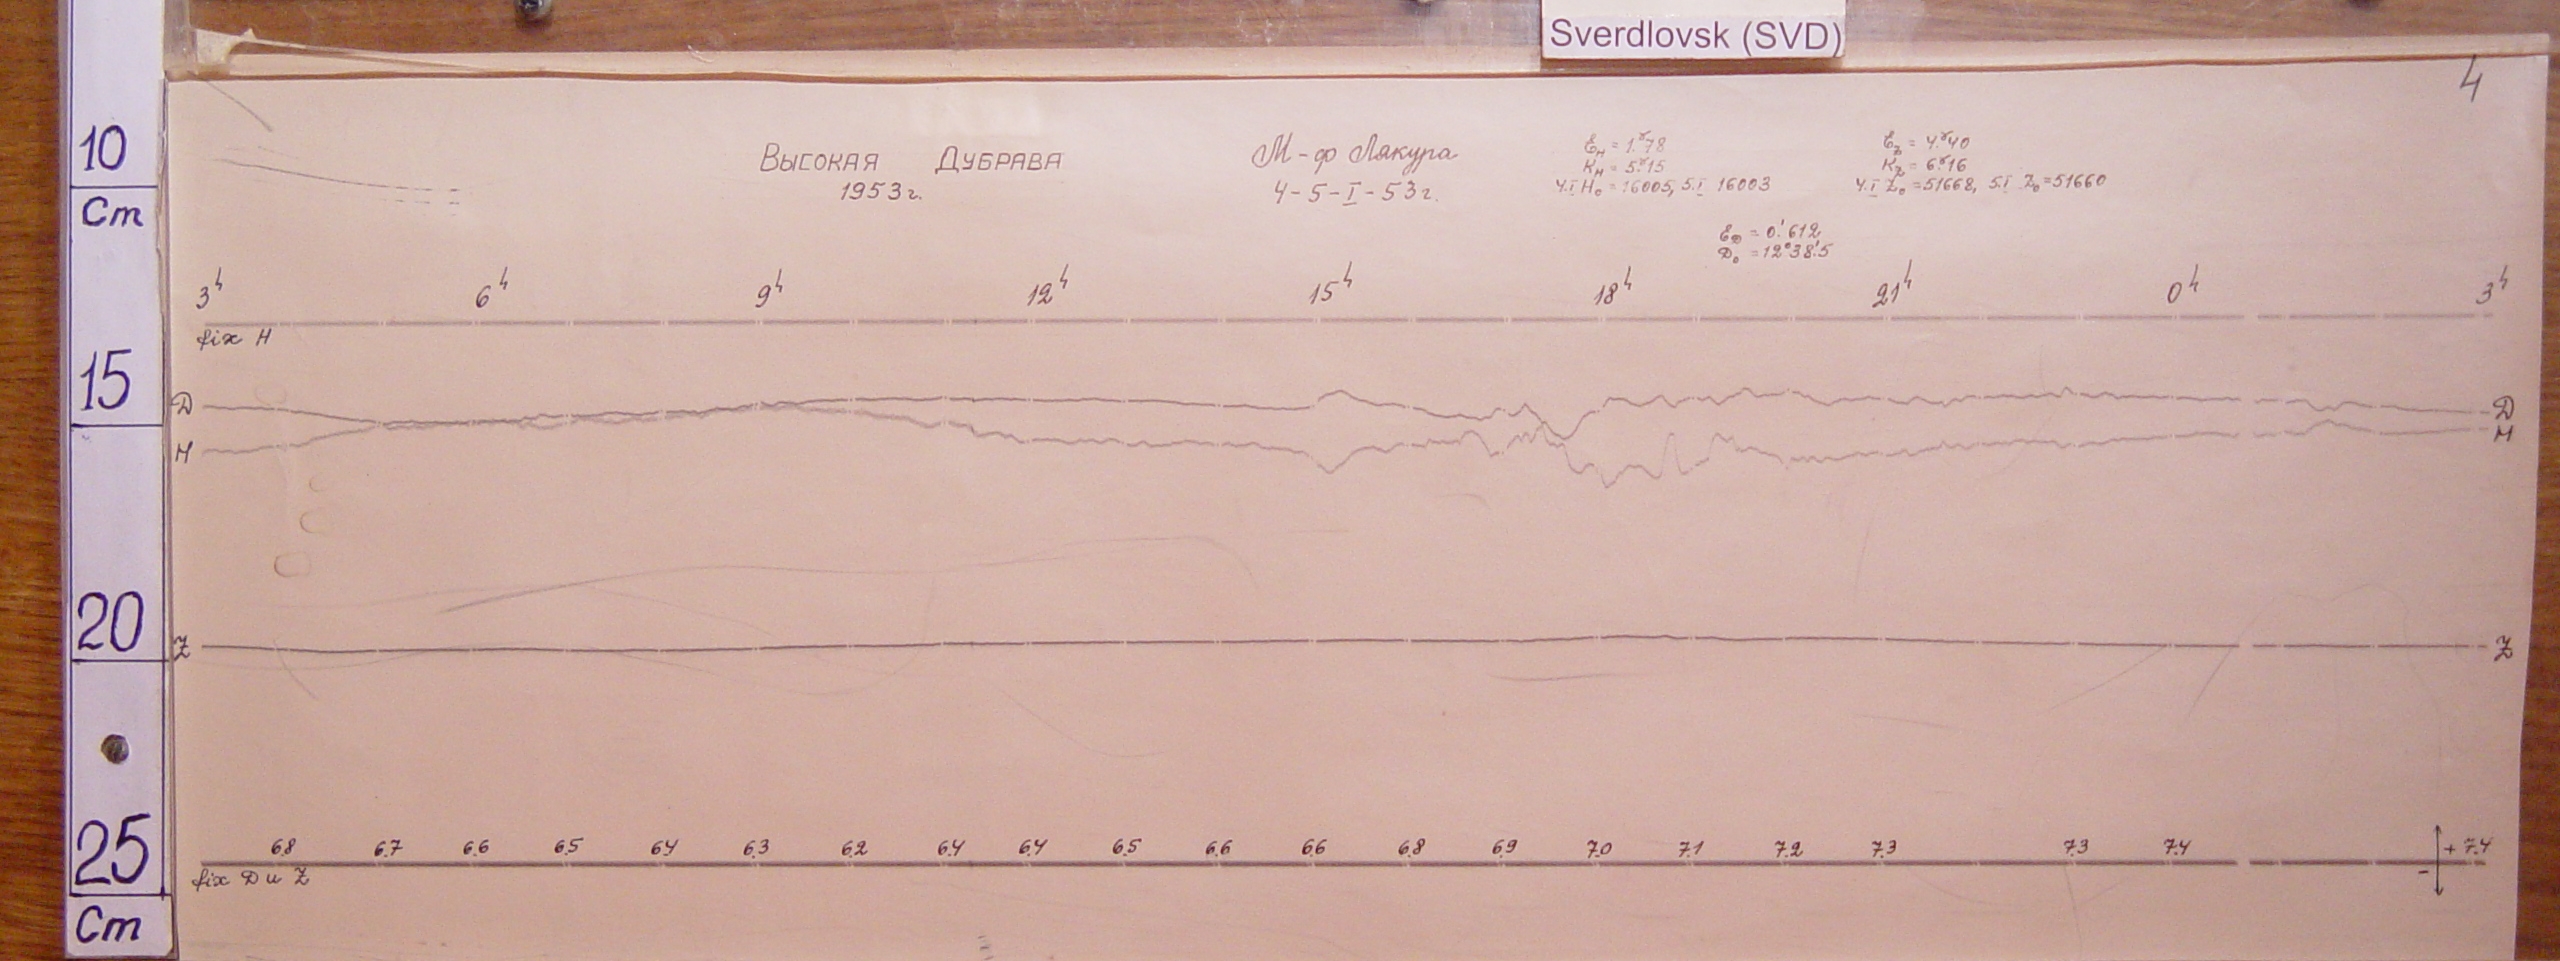 Sverdlovsk (SVD)
4
10
Cm
15
20
25
Cm
Высокая Дубрава
1953г.
М-ф Лакура
4-5-I-53г.
ℰH = 1.ᵞ78
KH = 5.ᵞ15
4.I H₀ = 16005, 5.I 16003
ℰZ = 4.ᵞ40
KZ = 6.ᵞ16
4.I Z₀ = 51668, 5.I Z₀ = 51660
ℰD = 0.'612
D₀ = 12°38.'5
3h 6h 9h 12h 15h 18h 21h 0h 3h
fix H
D D
H H
Z Z
6.8 6.7 6.6 6.5 6.4 6.3 6.2 6.4 6.4 6.5 6.6 6.6 6.8 6.9 7.0 7.1 7.2 7.3 7.3 7.4 + 7.4
-
fix D и Z